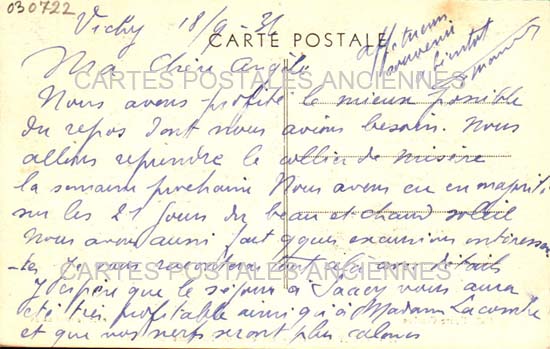 030722
Vichy 18/9-31
CARTE POSTALE
affectueux
souvenir
a bientot
Ma Chère Angèle
CARTES POSTALES ANCIENNES
Nous avons profité le mieux possible
du repos dont nous avions besoin. Nous
allons reprendre le collier de misère
la semaine prochaine Nous avons eu en majorité
sur les 21 jours du beau et chaud soleil
Nous avons aussi fait qques excursions intéressan
-tes Je vous raconterai tout cela en détails
CARTES POSTALES ANCIENNES
J'espère que le séjour à vous aura
été très profitable ainsi qu'à Madame Lacombe
et que vos nerfs seront plus calmes